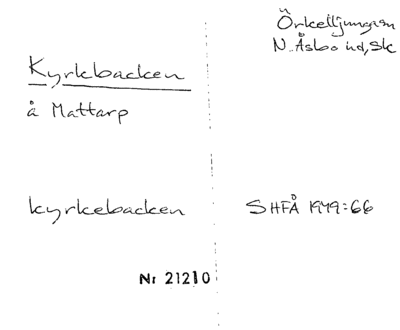 Örkelljungam
N. Åsbo hd, Sk
Kyrkbacken
å Mattarp
kyrkebacken
SHFÅ 1979:66
Nr 21210